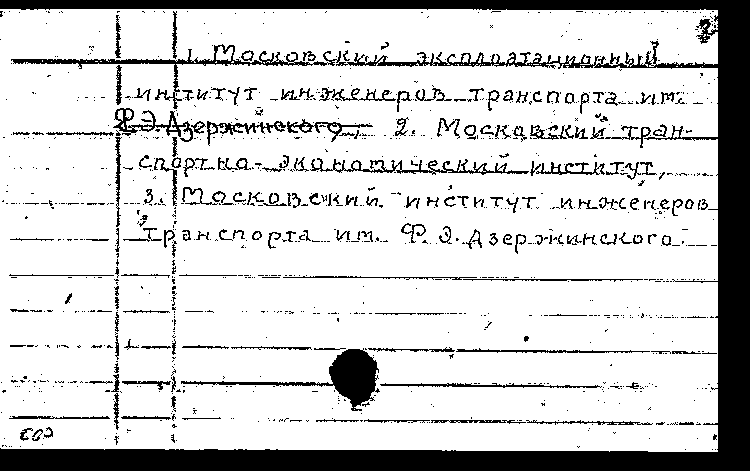 1. Московский эксплоатационный
институт инженеров транспорта им.
Ф.Э.Дзержинского, 2. Московский тран-
спортно-экономический институт,
3. Московский институт инженеров
транспорта им. Ф.Э.Дзержинского.